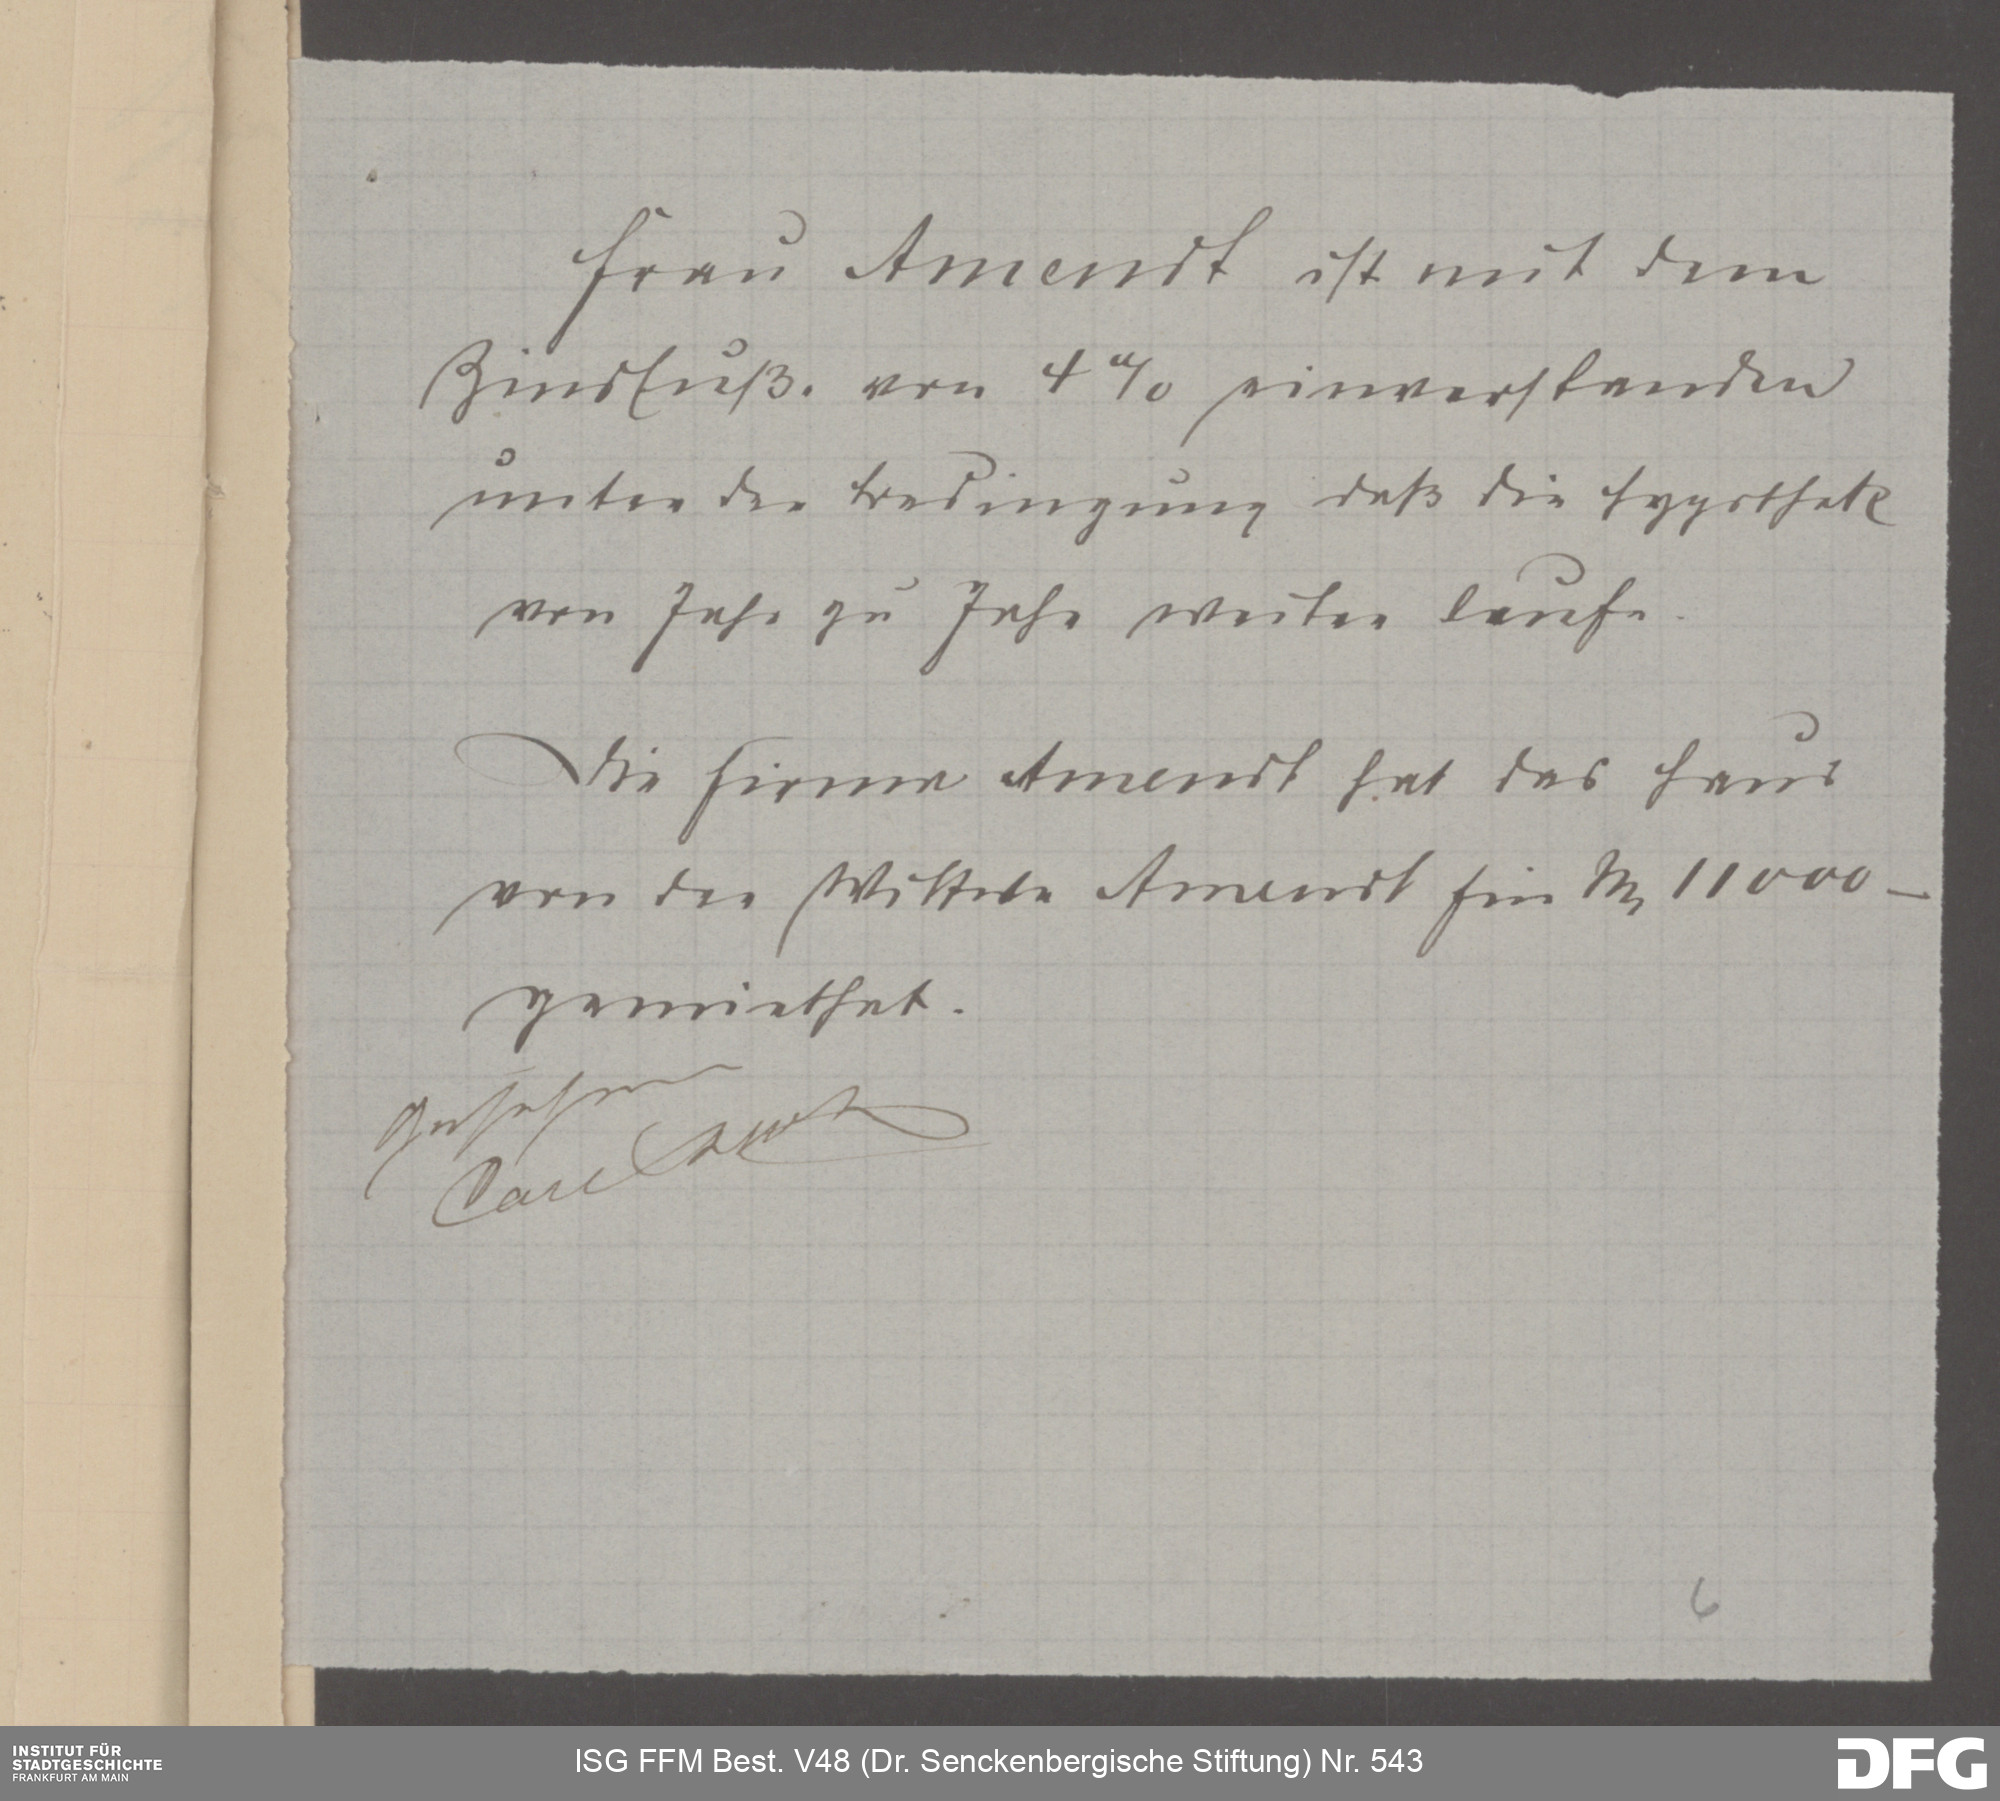 Frau Amendt ist mit dem
Zinsfuß. von 4 % einverstanden
unter der Bedingung daß die Hypothek
von Jahr zu Jahr weiter laufe.
Die Firma Amendt hat das Haus
von der Wittwe Amendt für M 11000 –
gemiethet.
Gesehen
Carl
6
INSTITUT FÜR
STADTGESCHICHTE
FRANKFURT AM MAIN
ISG FFM Best. V48 (Dr. Senckenbergische Stiftung) Nr. 543
DFG